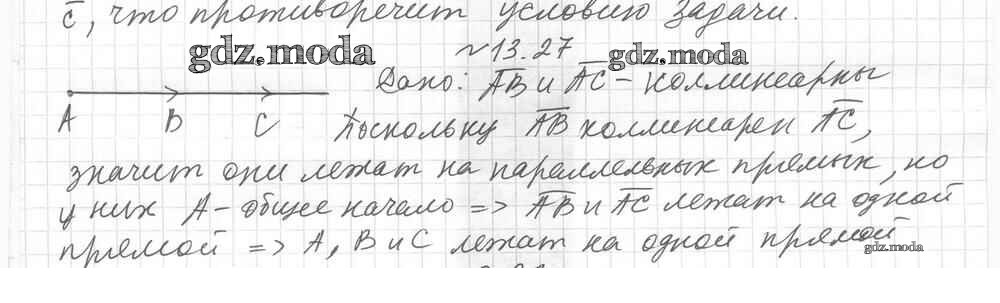 c̅, что противоречит условию задачи.
gdz.moda
№13.27
gdz.moda
Дано: A̅B̅ и A̅C̅ - коллинеарны
A B C
Поскольку A̅B̅ коллинеарен A̅C̅,
значит они лежат на параллельных прямых, но
у них A - общее начало => A̅B̅ и A̅C̅ лежат на одной
прямой => A, B и C лежат на одной прямой
gdz.moda